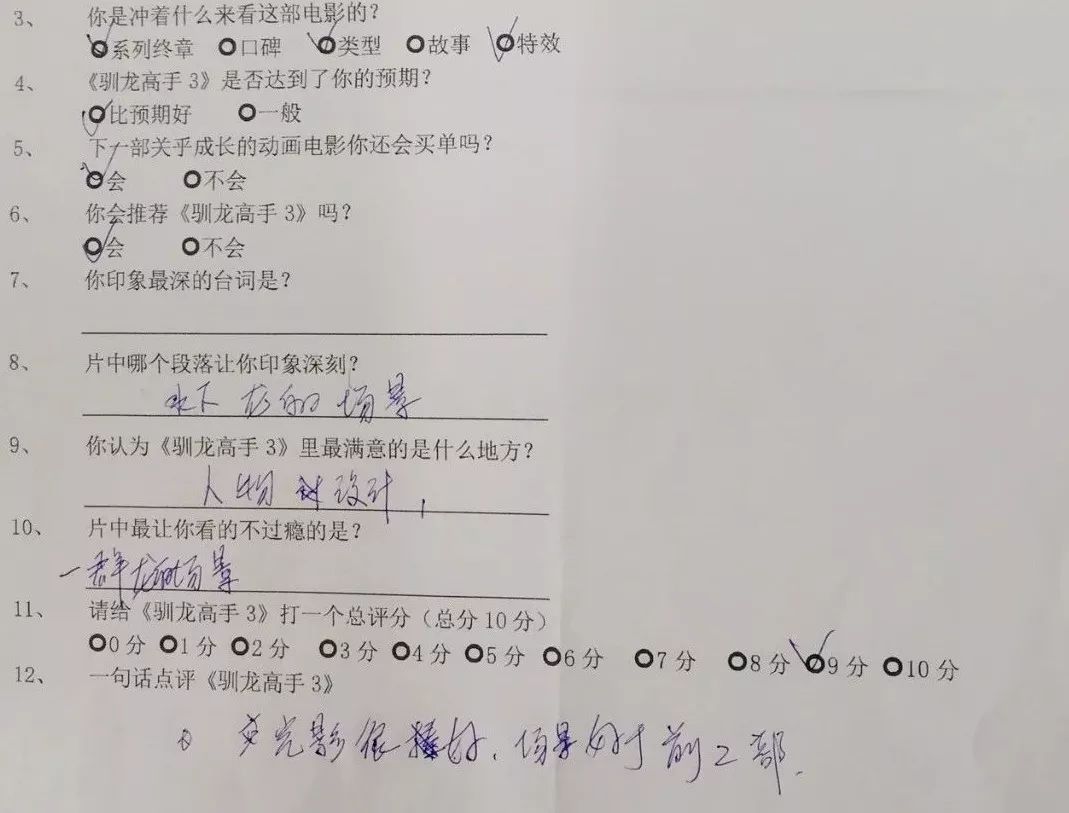 3、 你是冲着什么来看这部电影的？
系列终章 口碑 类型 故事 特效
4、 《驯龙高手3》是否达到了你的预期？
比预期好 一般
5、 下一部关乎成长的动画电影你还会买单吗？
会 不会
6、 你会推荐《驯龙高手3》吗？
会 不会
7、 你印象最深的台词是？
8、 片中哪个段落让你印象深刻？
水下龙的场景
9、 你认为《驯龙高手3》里最满意的是什么地方？
人物 设计，
10、 片中最让你看的不过瘾的是？
一群龙的场景
11、 请给《驯龙高手3》打一个总评分（总分10分）
0分 1分 2分 3分 4分 5分 6分 7分 8分 9分 10分
12、 一句话点评《驯龙高手3》
光影很 好，场景好于前2部.